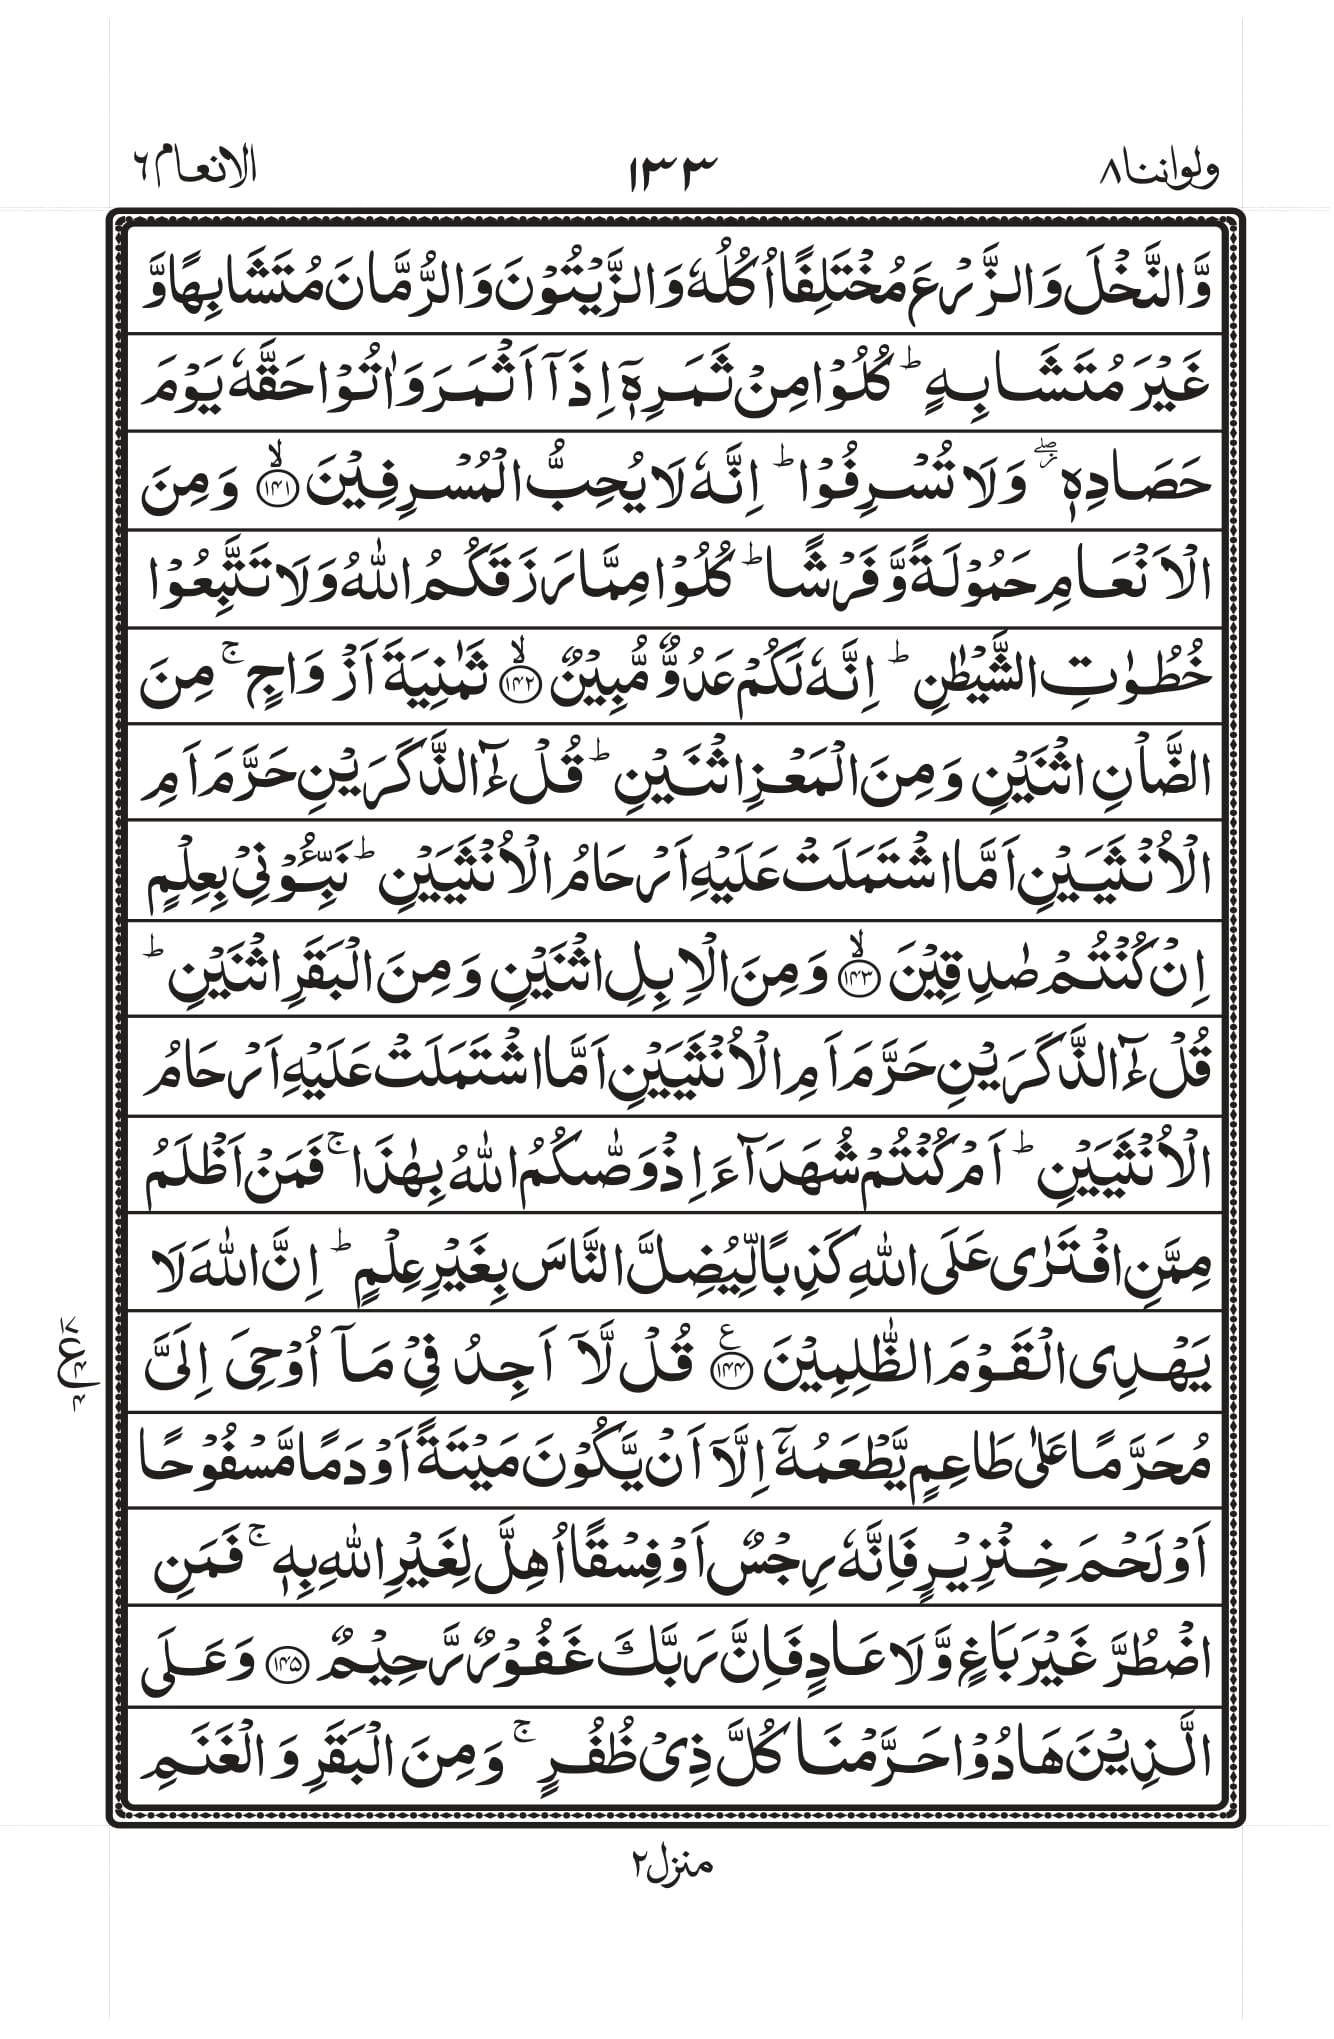 ولواننا ٨
١٣٣
الانعام ٦
وَّالنَّخۡلَ وَالزَّرۡعَ مُخۡتَلِفًا اُكُلُهٗ وَالزَّيۡتُوۡنَ وَالرُّمَّانَ مُتَشَابِهًا وَّ
غَيۡرَ مُتَشَابِهٍ ؕ كُلُوۡا مِنۡ ثَمَرِهٖۤ اِذَاۤ اَثۡمَرَ وَاٰتُوۡا حَقَّهٗ يَوۡمَ
حَصَادِهٖ ۖ وَلَا تُسۡرِفُوۡا ؕ اِنَّهٗ لَا يُحِبُّ الۡمُسۡرِفِيۡنَ ۙ‏﴿۱۴۱﴾ وَمِنَ
الۡاَنۡعَامِ حَمُوۡلَةً وَّفَرۡشًا ؕ كُلُوۡا مِمَّا رَزَقَكُمُ اللّٰهُ وَلَا تَتَّبِعُوۡا
خُطُوٰتِ الشَّيۡطٰنِ ؕ اِنَّهٗ لَكُمۡ عَدُوٌّ مُّبِيۡنٌ ۙ‏﴿۱۴۲﴾ ثَمٰنِيَةَ اَزۡوَاجٍ ۚ مِنَ
الضَّاۡنِ اثۡنَيۡنِ وَمِنَ الۡمَعۡزِ اثۡنَيۡنِ ؕ قُلۡ ءٰٓالذَّكَرَيۡنِ حَرَّمَ اَمِ
الۡاُنۡثَيَيۡنِ اَمَّا اشۡتَمَلَتۡ عَلَيۡهِ اَرۡحَامُ الۡاُنۡثَيَيۡنِ ؕ نَبِّـُٔوۡنِىۡ بِعِلۡمٍ
اِنۡ كُنۡتُمۡ صٰدِقِيۡنَ ۙ‏﴿۱۴۳﴾ وَمِنَ الۡاِبِلِ اثۡنَيۡنِ وَمِنَ الۡبَقَرِ اثۡنَيۡنِ ؕ
قُلۡ ءٰٓالذَّكَرَيۡنِ حَرَّمَ اَمِ الۡاُنۡثَيَيۡنِ اَمَّا اشۡتَمَلَتۡ عَلَيۡهِ اَرۡحَامُ
الۡاُنۡثَيَيۡنِ ؕ اَمۡ كُنۡتُمۡ شُهَدَآءَ اِذۡ وَصّٰٮكُمُ اللّٰهُ بِهٰذَا ۚ فَمَنۡ اَظۡلَمُ
مِمَّنِ افۡتَرٰى عَلَى اللّٰهِ كَذِبًا لِّيُضِلَّ النَّاسَ بِغَيۡرِ عِلۡمٍ ؕ اِنَّ اللّٰهَ لَا
يَهۡدِى الۡقَوۡمَ الظّٰلِمِيۡنَ ﴿۱۴۴﴾ قُلۡ لَّاۤ اَجِدُ فِىۡ مَاۤ اُوۡحِىَ اِلَىَّ
مُحَرَّمًا عَلٰى طَاعِمٍ يَّطۡعَمُهٗۤ اِلَّاۤ اَنۡ يَّكُوۡنَ مَيۡتَةً اَوۡ دَمًا مَّسۡفُوۡحًا
اَوۡ لَحۡمَ خِنۡزِيۡرٍ فَاِنَّهٗ رِجۡسٌ اَوۡ فِسۡقًا اُهِلَّ لِغَيۡرِ اللّٰهِ بِهٖ ۚ فَمَنِ
اضۡطُرَّ غَيۡرَ بَاغٍ وَّلَا عَادٍ فَاِنَّ رَبَّكَ غَفُوۡرٌ رَّحِيۡمٌ ﴿۱۴۵﴾ وَعَلَى
الَّذِيۡنَ هَادُوۡا حَرَّمۡنَا كُلَّ ذِىۡ ظُفُرٍ ۚ وَمِنَ الۡبَقَرِ وَالۡغَنَمِ
١٧
ع
۴
۴
منزل ٢